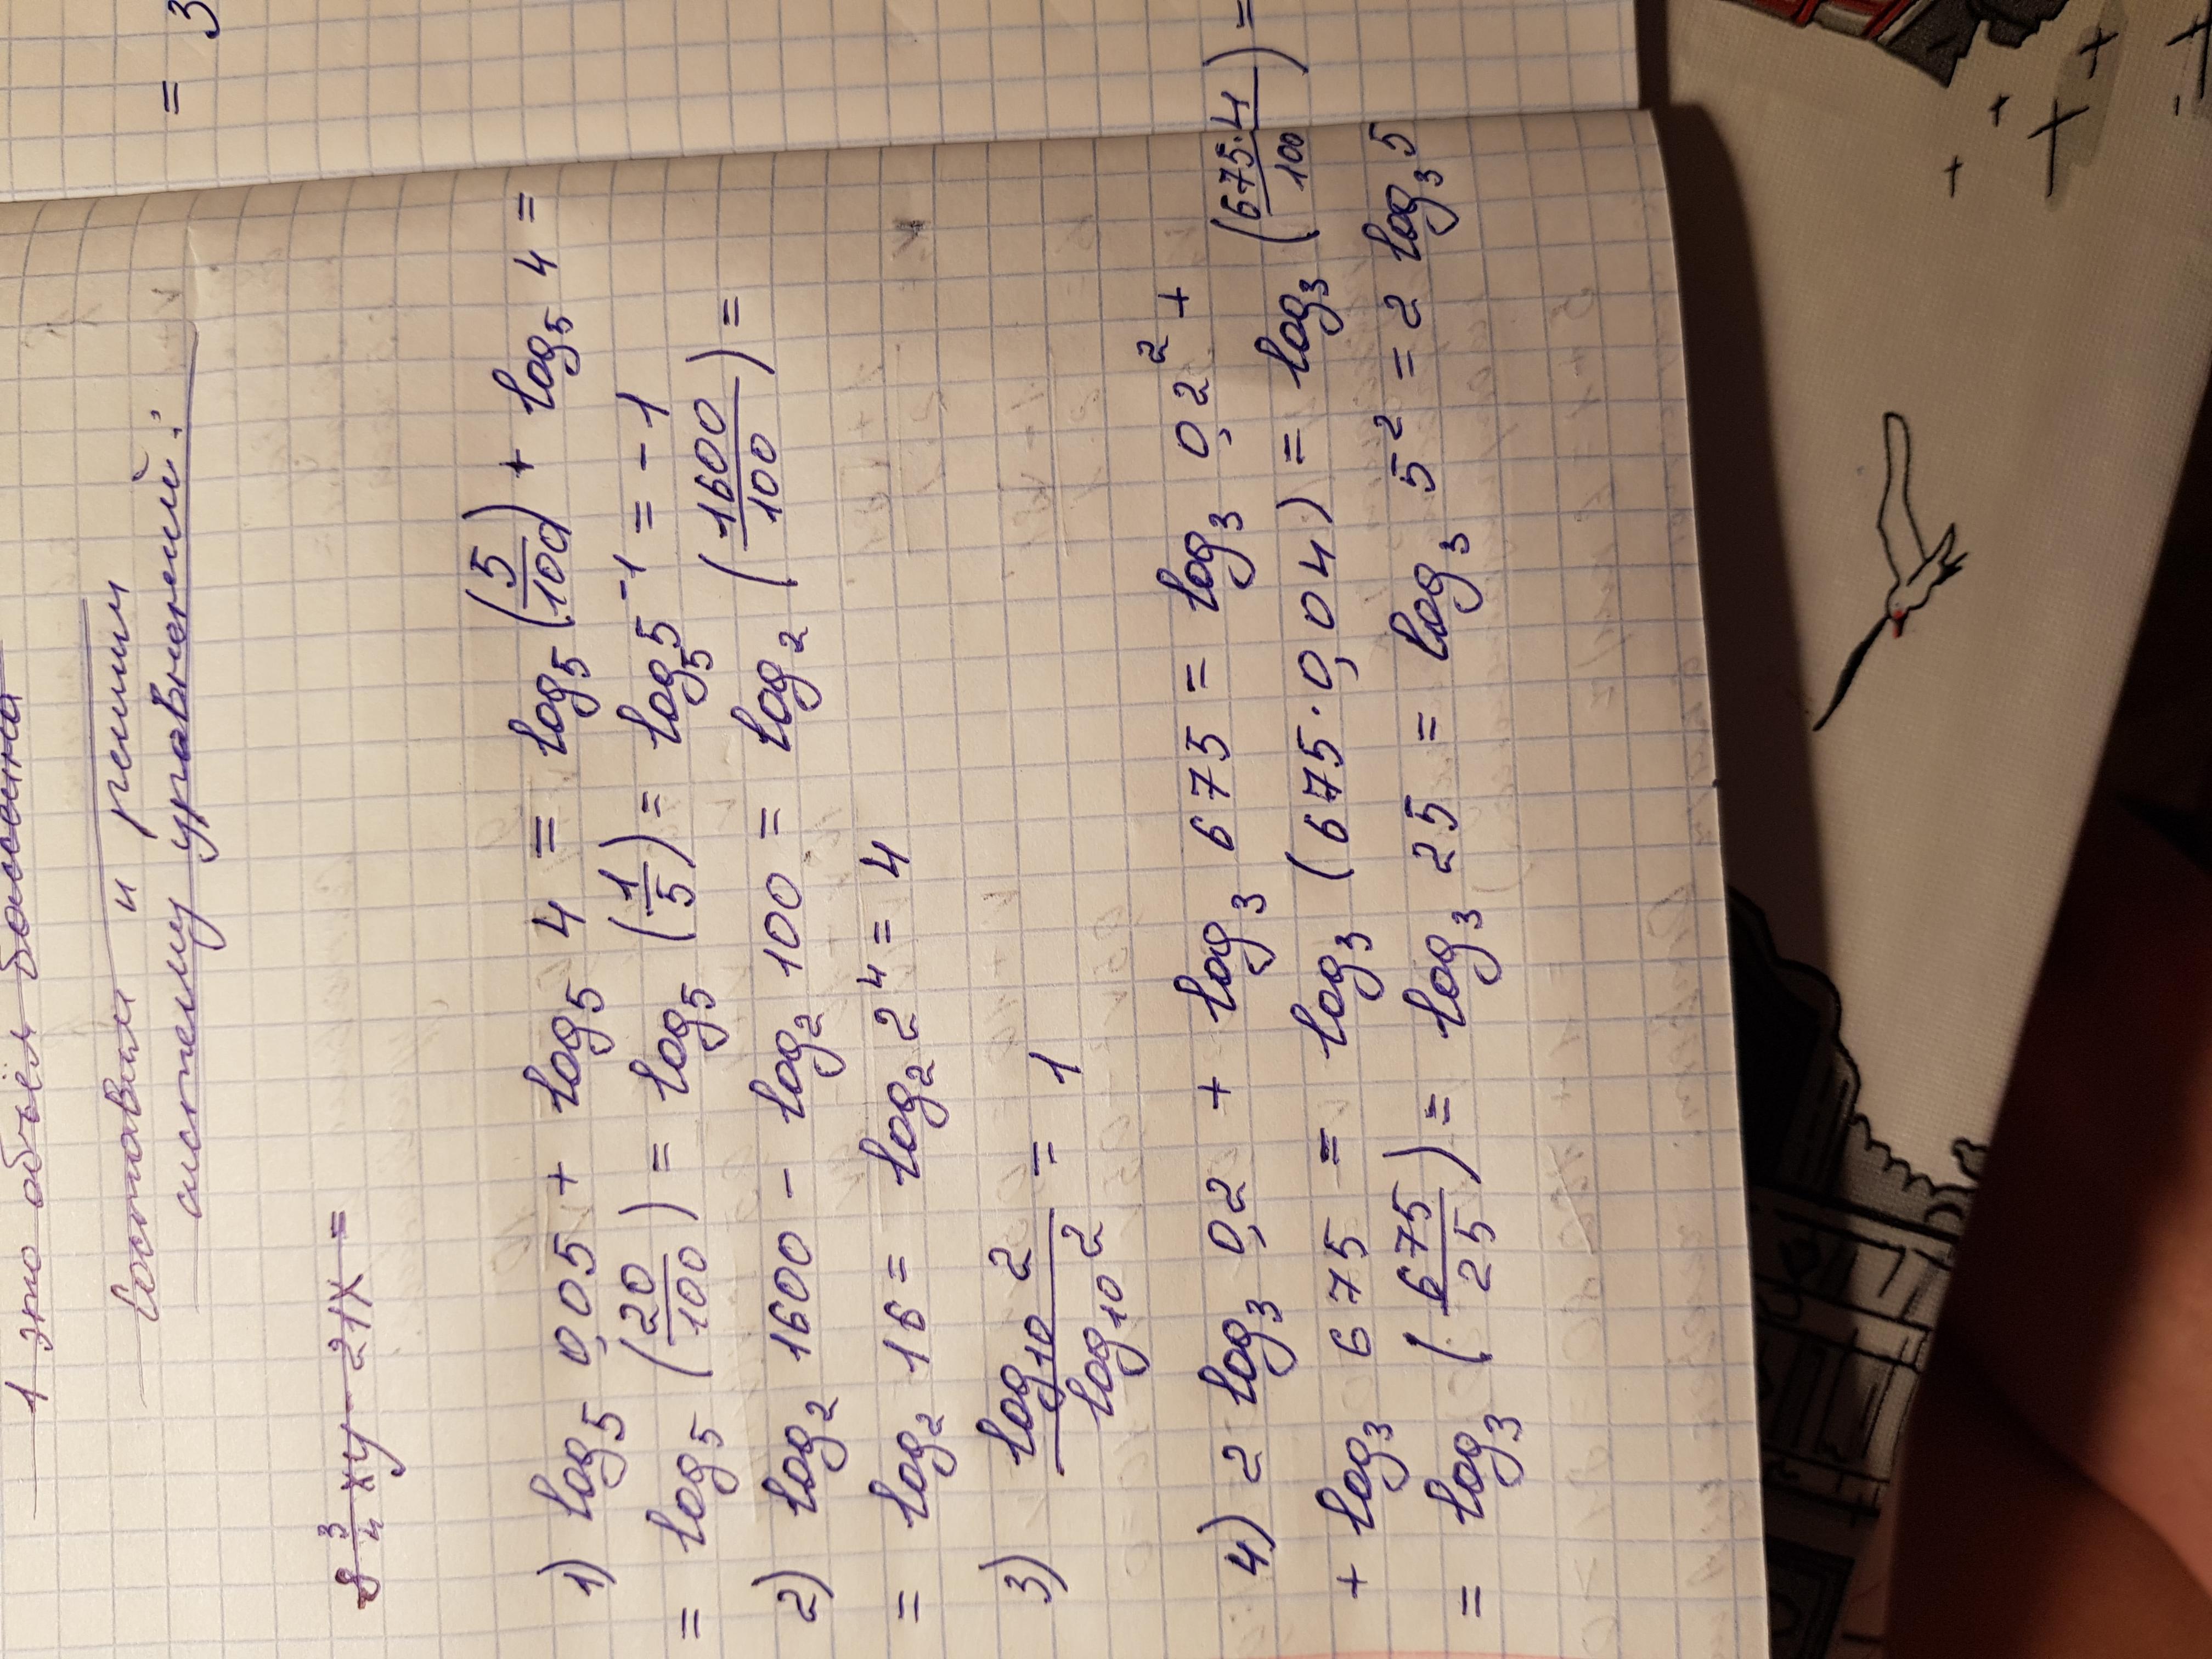 = 3
1 это объём болонна
составим и решим
систему уравнений:
8 3/4 xy - 21x =
1) log₅ 0,05 + log₅ 4 = log₅ (5/100) + log₅ 4 =
= log₅ (20/100) = log₅ (1/5) = log₅ 5⁻¹ = -1
2) log₂ 1600 - log₂ 100 = log₂ (1600/100) =
= log₂ 16 = log₂ 2⁴ = 4
3) log₁₀ 2 / log₁₀ 2 = 1
4) 2 log₃ 0,2 + log₃ 675 = log₃ 0,2² +
+ log₃ 675 = log₃ (675·0,04) = log₃ (675·4/100) =
= log₃ (675/25) = log₃ 25 = log₃ 5² = 2 log₃ 5